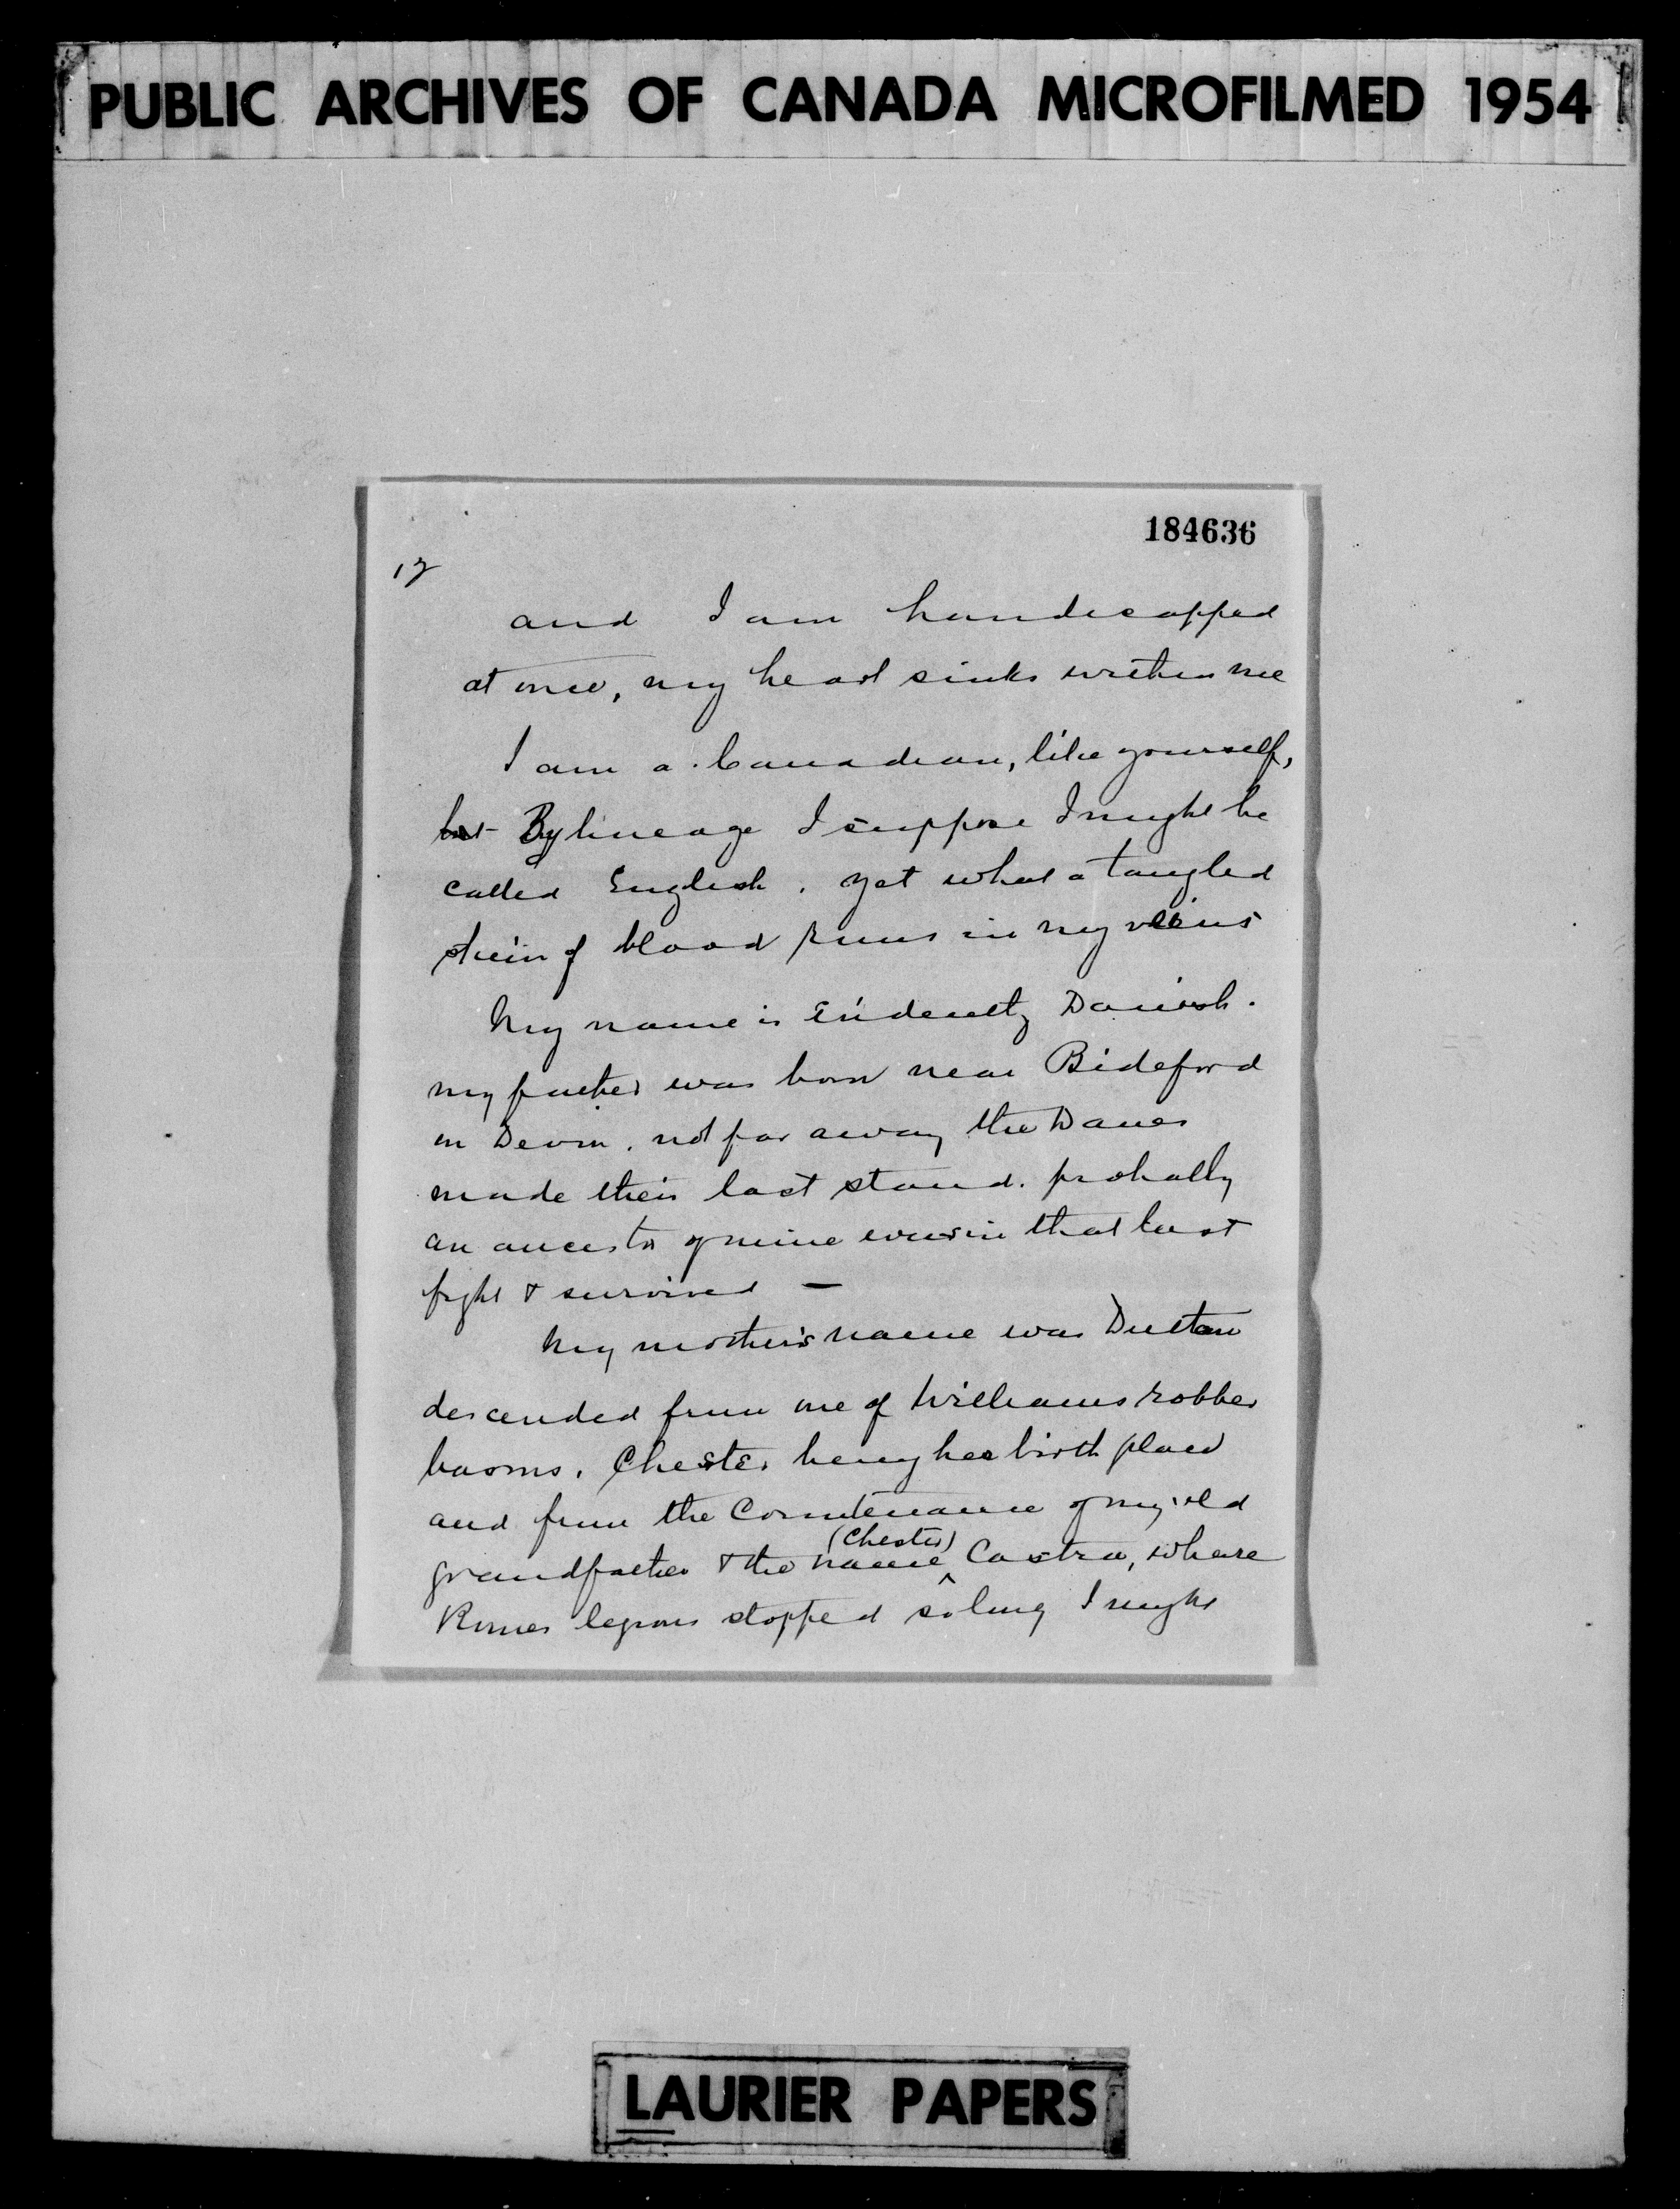 PUBLIC ARCHIVES OF CANADA MICROFILMED 1954
184636
17
and I am handicapped
at once, my heart sinks within me
I am a Canadian, like yourself,
but By lineage I suppose I might be
called English. Yet what a tangled
skein of blood runs in my veins
My name is Evidently Danish.
my father was born near Bideford
in Devon, not far away the Danes
made their last stand. probally
an ancestor of mine was in that last
fight & survived —
My mother's name was Dutton
descended from one of Williams robber
barons. Chester being her birth place
and from the Countenance of my old
(Chester)
grandfather & the name Castra, where
Romes legions stopped so long I might
LAURIER PAPERS